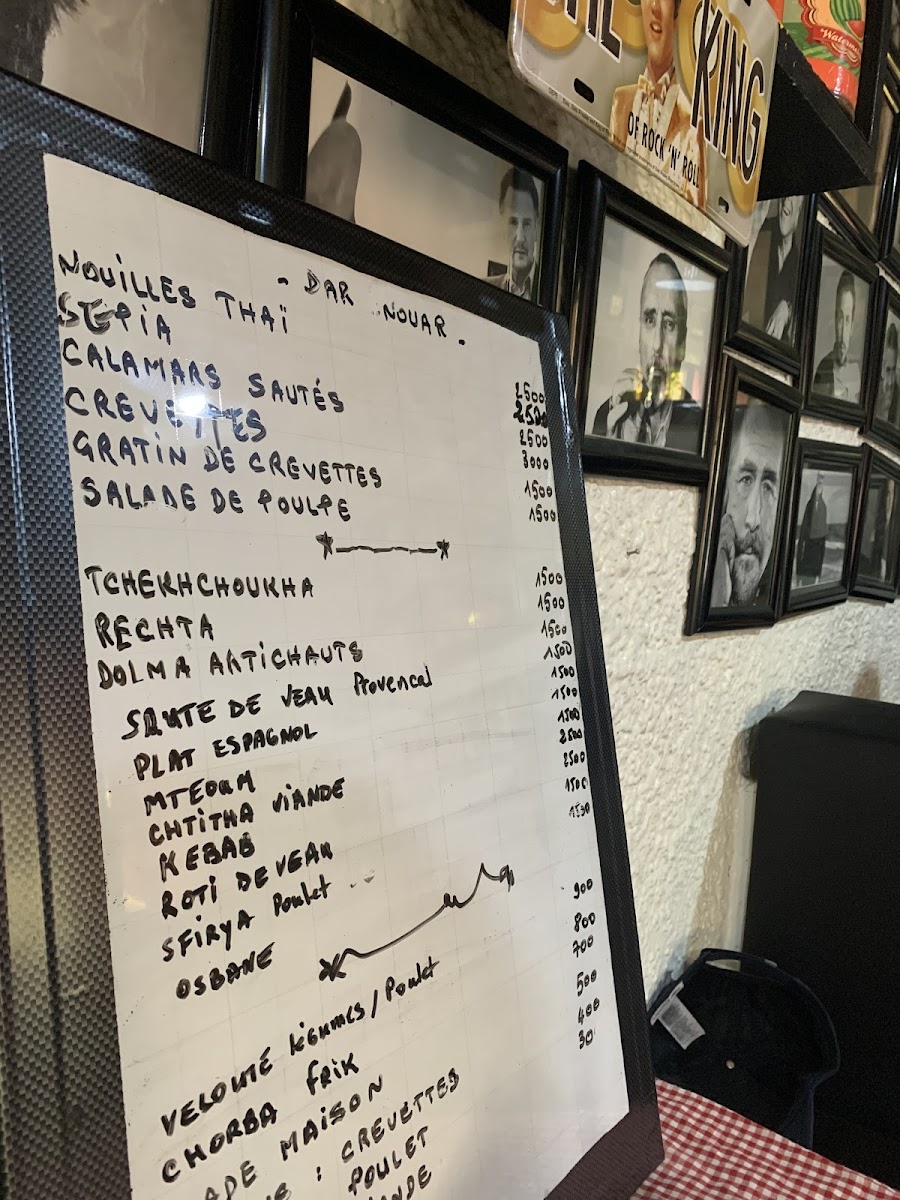 OF ROCK 'N' ROLL
KING
Waterm
- DAR NOUAR -
NOUILLES THAÏ 2500
SEPIA 2500
CALAMARS SAUTÉS 2500
CREVETTES 3000
GRATIN DE CREVETTES 1500
SALADE DE POULPE 1500
TCHEKHCHOUKHA 1500
RECHTA 1500
DOLMA ARTICHAUTS 1500
SAUTE DE VEAU Provencal 1500
PLAT ESPAGNOL 1500
MTEOUM 1500
CHTITHA VIANDE 1500
KEBAB 2500
ROTI DE VEAU 2500
SFIRYA Poulet 1500
OSBANE 1500
VELOUTÉ légumes / Poulet 900
CHORBA FRIK 800
ADE MAISON 700
: CREVETTES 500
POULET 400
ANDE 30